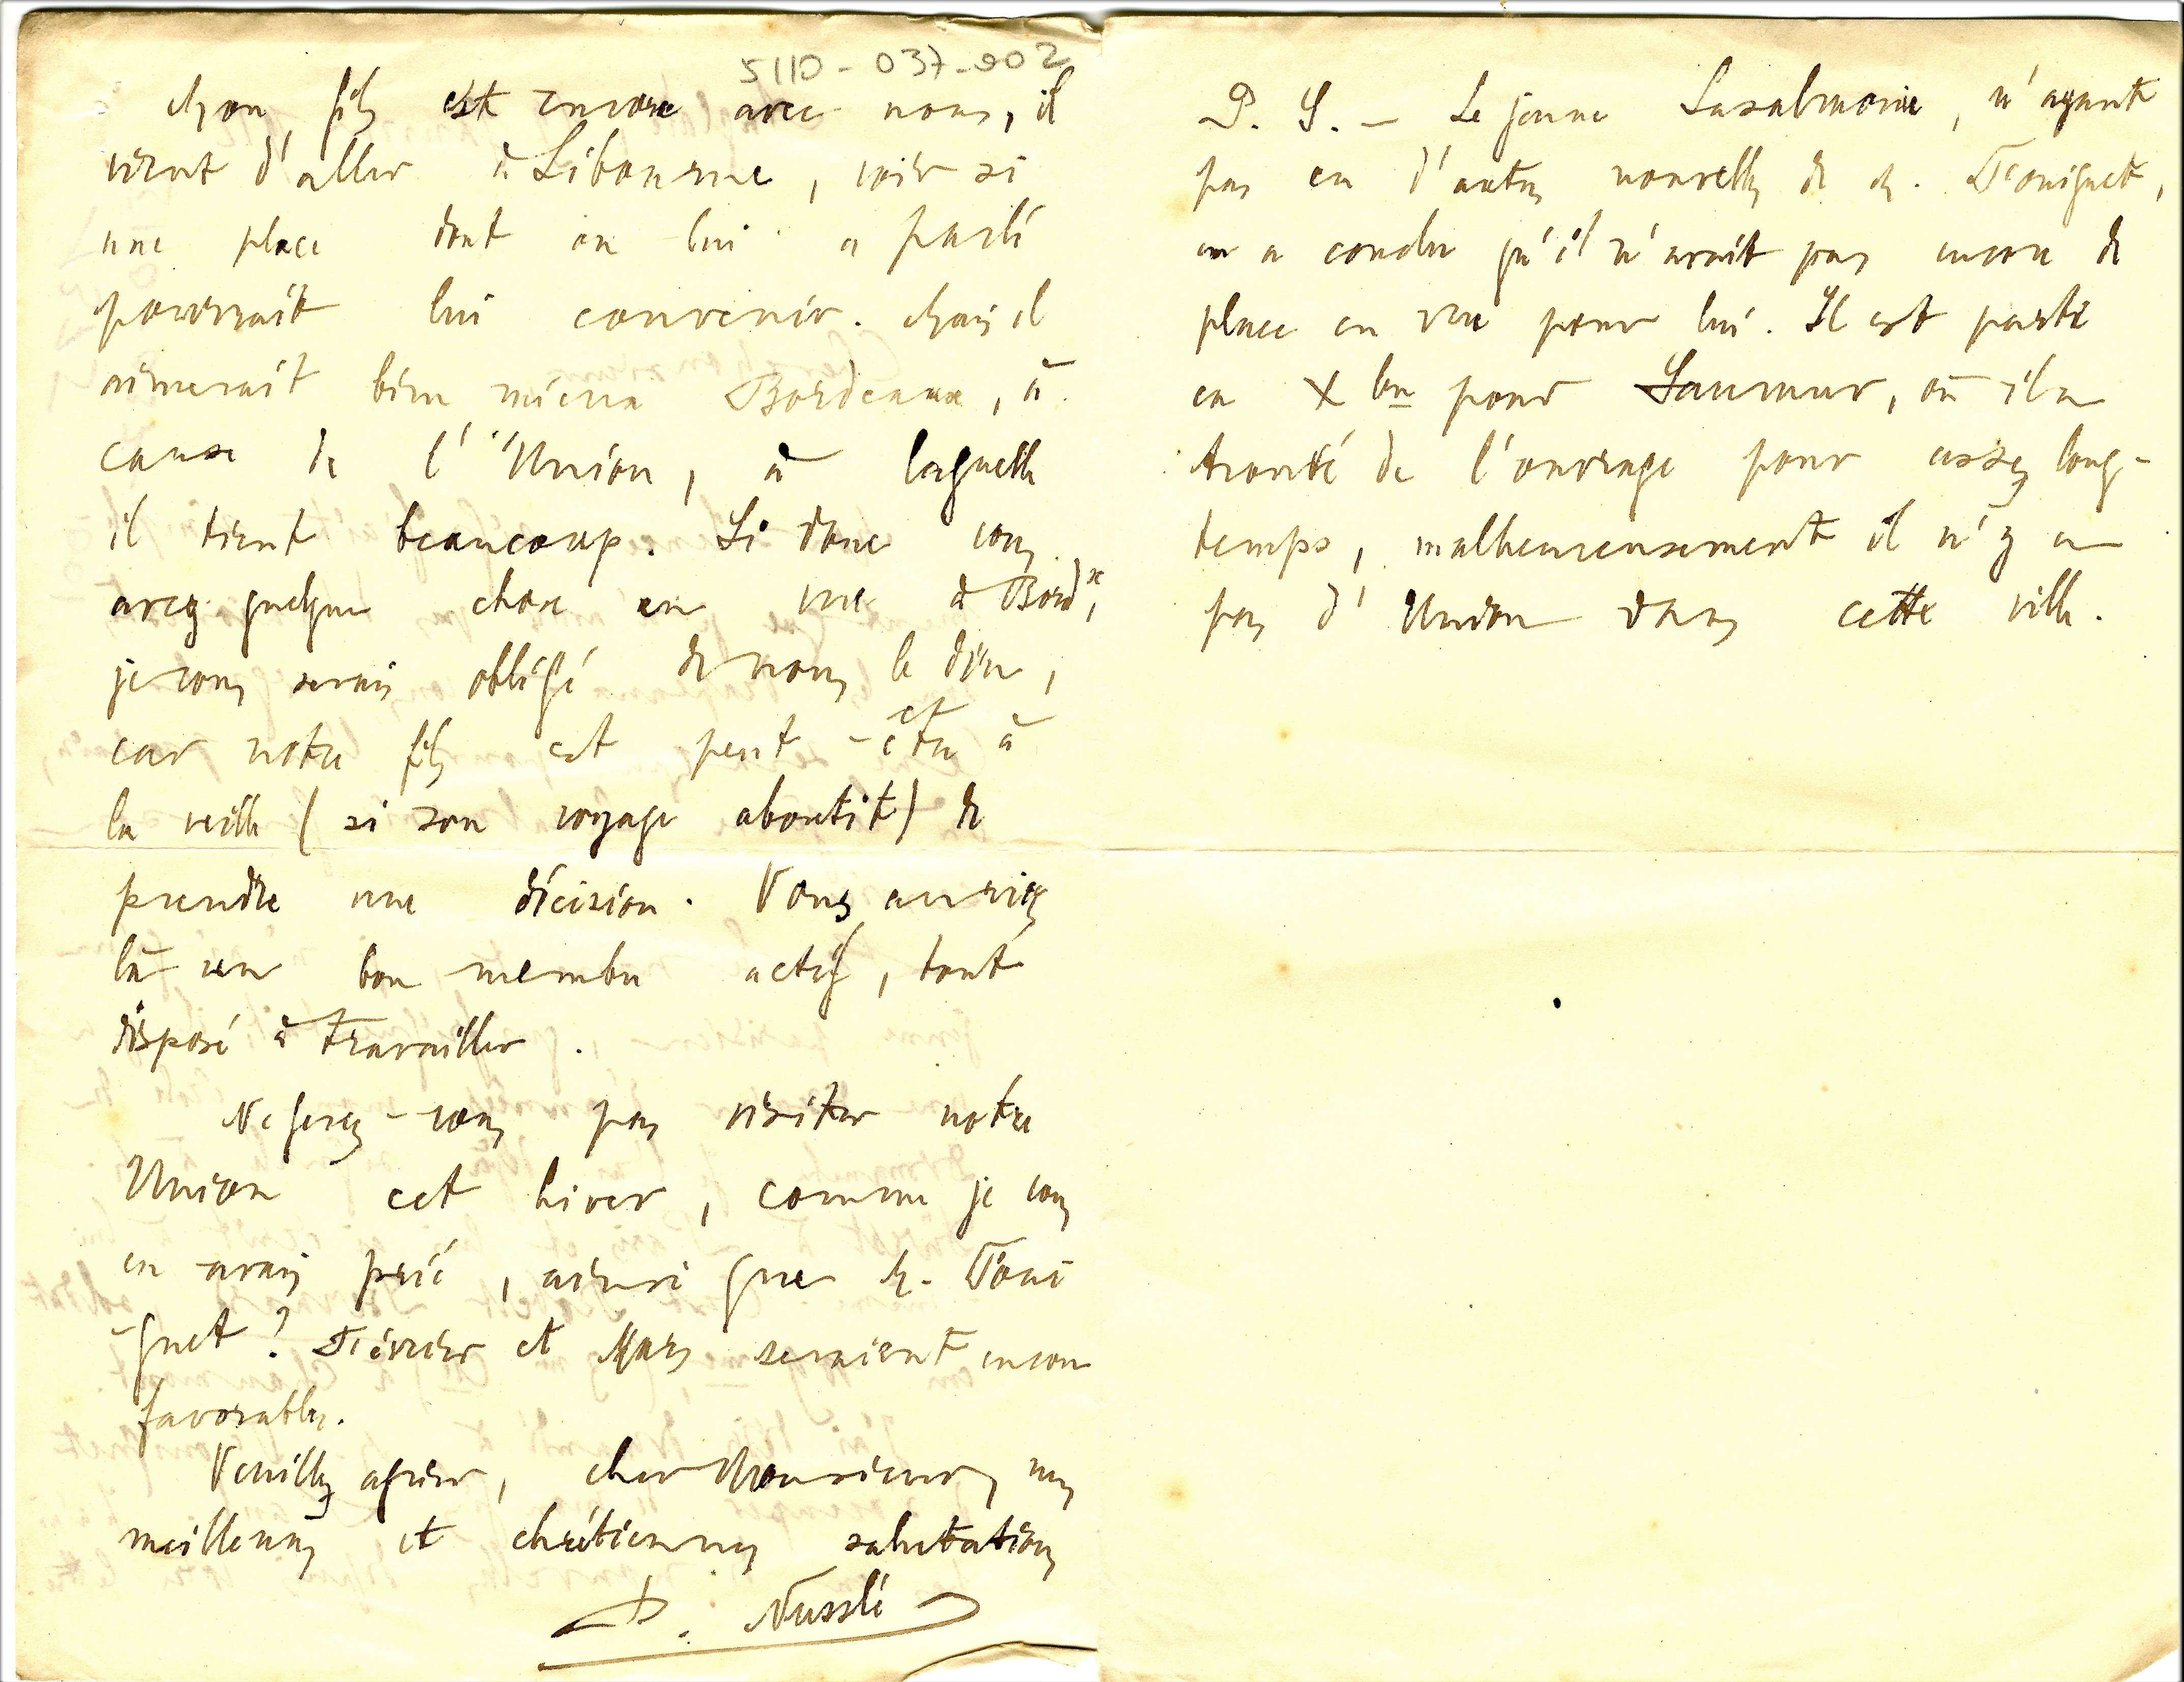 5110-037-002
Mon fils est encore avec nous, il
vient d'aller à Libourne, voir si
une place dont on lui a parlé
pourrait lui convenir. Mais il
aimerait bien mieux Bordeaux, à
cause de l'Union, à laquelle
il tient beaucoup. Si donc vous
avez quelque chose en vue à Bordx,
je vous serais obligé de nous le dire,
car notre fils est peut-être à
la veille (si son voyage aboutit) de
prendre une décision. Vous auriez
là un bon membre actif, tout
disposé à travailler.
Ne ferez-vous pas visiter notre
Union cet hiver, comme je vous
en avais prié, ainsi que M. Foui
-gnet? Février et Mars seraient encore
favorables.
Veuillez agréer, cher Monsieur, mes
meilleures et chrétiennes salutations
D. Nussli
P. S. - Le jeune Lasalmonie, n'ayant
pas eu d'autres nouvelles de M. Fouignet,
en a conclu qu'il n'avait pas encore de
place en vue pour lui. Il est parti
en Xbre pour Saumur, où il a
trouvé de l'ouvrage pour assez long-
temps, malheureusement il n'y a
pas d'Union dans cette ville.